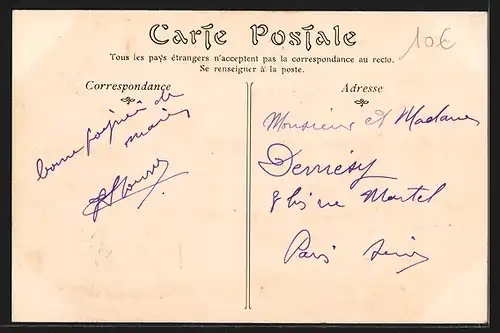 Carte Postale
10€
Tous les pays étrangers n'acceptent pas la correspondance au recto.
Se renseigner à la poste.
Correspondance
bonne poignée de
mains
Adresse
Monsieur et Madame
Demésy
8 bis rue Martel
Paris